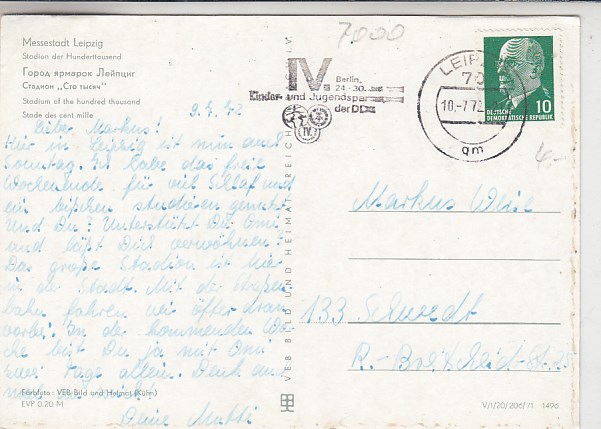 7000
Messestadt Leipzig
Stadion der Hunderttausend
Город ярмарок Лейпциг
Стадион „Сто тысяч"
Stadium of the hundred thousand
Stade des cent mille
9.7.72
Lieber Markus!
Hier in Leipzig ist nun auch
Sonntag. Ich habe das freie
Wochenende für viel Schlaf und
ein bißchen studieren genutzt
und Du? Unterstützt Du Omi
und läßt Dich verwöhnen?
Das große Stadion ist hier
in der Stadt. Mit der Straßen
bahn fahren wir öfter dran
vorbei. In der kommenden Wo
che bist Du ja mit Omi
zwei Tage allein. Denk auch
mal an mich!
Deine Mutti
Farbfoto: VEB Bild und Heimat (Kühn)
EVP 0,20 M
VEB BILD UND HEIMAT REICHENBACH i. V.
IV.
Berlin,
24.-30.
Kinder- und Jugendspar
der DDR
IV.
LEIPZIG
70
10.-7.72
qm
10
DEUTSCHE
DEMOKRATISCHE REPUBLIK
4,-
Markus
133 Schwedt
R.-Breitscheid-Str. 25
V/1/20/206/71 1496